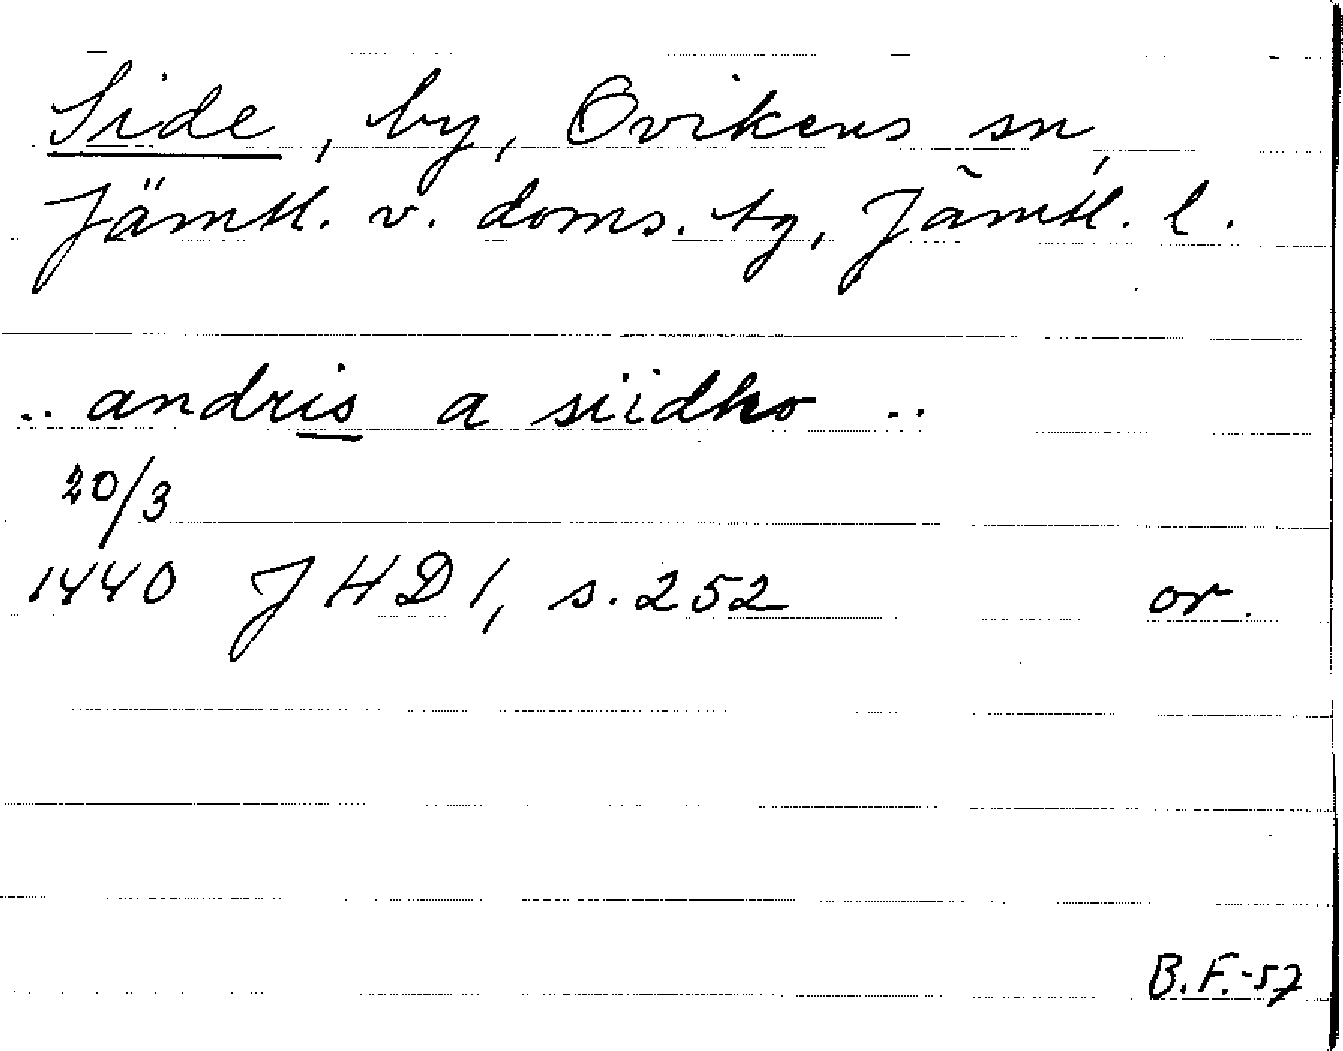 Side, by, Ovikens sn,
Jämtl. v. doms. tg, Jämtl. l.
.. andris a siidho ..
20/3
1440 JHD 1, s. 252 or.
B.F.-57